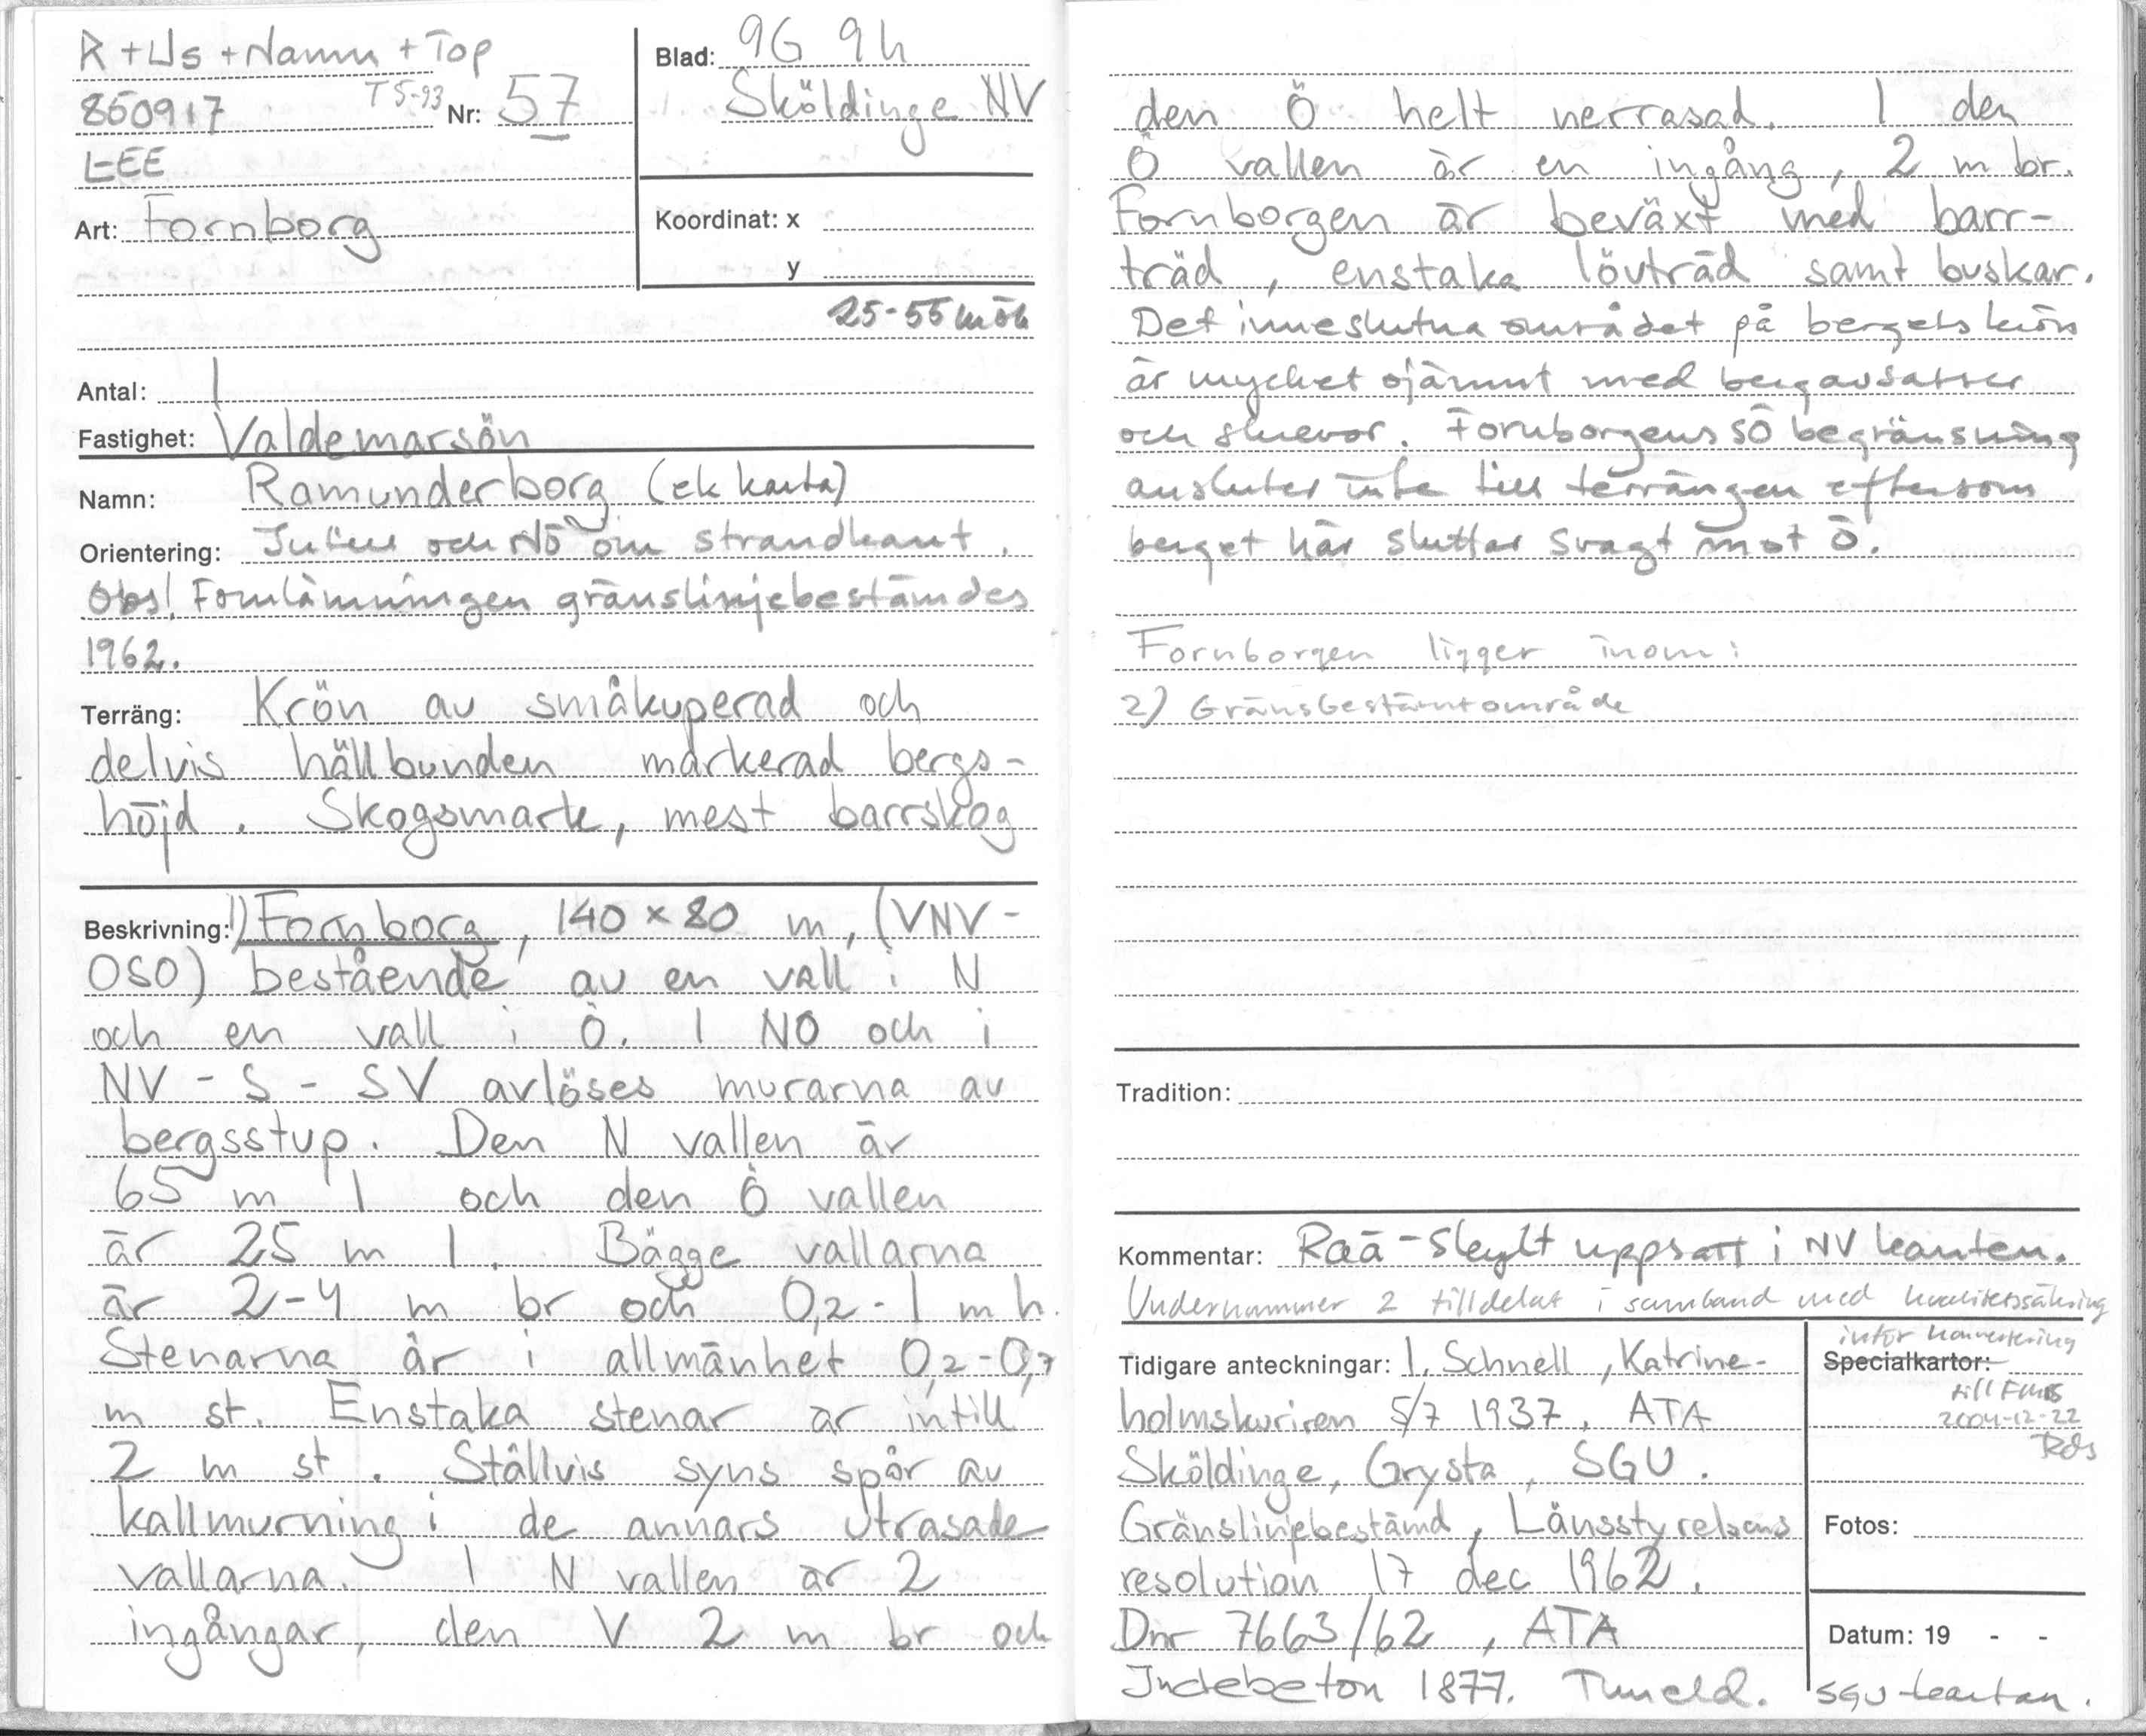 R + Us + Namn + Top
850917 TS-93 Nr: 57
LEE
Art: Fornborg
Blad: 9G 9h
Sköldinge NV
Koordinat: x
y
25-55 möh
Antal: 1
Fastighet: Valdemarsön
Namn: Ramunderborg (ek karta)
Orientering: Intill och NÖ om strandkant.
Obs! Fornlämningen gränslinjebestämdes
1962.
Terräng: Krön av småkuperad och
delvis hällbunden markerad bergs-
höjd. Skogsmark, mest barrskog
Beskrivning: 1) Fornborg, 140 x 80 m, (VNV-
OSO) bestående av en vall i N
och en vall i Ö. I NO och i
NV - S - SV avlöses murarna av
bergsstup. Den N vallen är
65 m l och den Ö vallen
är 25 m l. Bägge vallarna
är 2-4 m br och 0,2-1 m h.
Stenarna är i allmänhet 0,2-0,7
m st. Enstaka stenar är intill
2 m st. Ställvis syns spår av
kallmurning i de annars utrasade
vallarna. I N vallen är 2
ingångar, den V 2 m br och
den Ö helt nerrasad. I den
Ö vallen är en ingång, 2 m br.
Fornborgen är beväxt med barr-
träd, enstaka lövträd samt buskar.
Det inneslutna området på bergets krön
är mycket ojämnt med bergavsatser
och skrevor. Fornborgens SÖ begränsning
ansluter inte till terrängen eftersom
berget här sluttar svagt mot Ö.
Fornborgen ligger inom:
2) Gränsbestämt område
Tradition:
Kommentar: Raä-skylt uppsatt i NV kanten.
Undernummer 2 tilldelat i samband med kvalitetssäkring
inför konvertering
till FMIS
2004-12-22
Tidigare anteckningar: I. Schnell, Katrine-
holmskuriren 5/7 1937, ATA
Sköldinge, Grysta, SGU.
Gränslinjebestämd, Länsstyrelsens
resolution 17 dec 1962.
Dnr 7663/62, ATA
Indebetou 1877. Tuneld.
Specialkartor:
Fotos:
Datum: 19 - -
SGU-kartan.